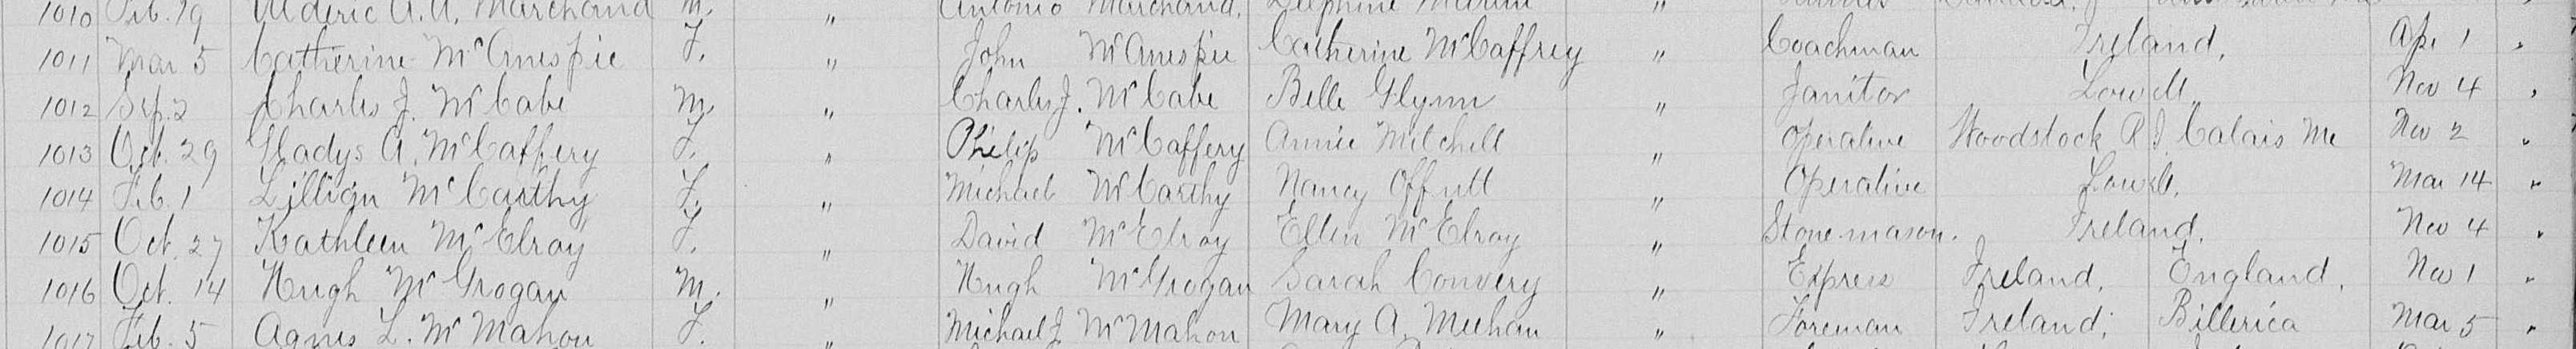 1010 Feb. 19 Alderic A. A. Marchand M. " Antonio Marchand. Delphine "
1011 Mar 5 Catherine McAnespie F. " John McAnespie Catherine McCaffrey " Coachman Ireland, Apr 1 "
1012 Sep. 2 Charles J. McCabe M. " Charles J. McCabe Belle Glynn " Janitor Lowell, Nov 4 "
1013 Oct. 29 Gladys A. McCaffery F. " Philip McCaffery Annie Mitchell " Operative Woodstock R.I. Calais Me Nov 2 "
1014 Feb. 1 Lillian McCarthy F. " Michael McCarthy Nancy Offutt " Operative Lowell, Mar 14 "
1015 Oct. 27 Kathleen McElroy F. " David McElroy Ellen McElroy " Stone mason. Ireland, Nov 4 "
1016 Oct. 14 Hugh McGrogan M. " Hugh McGrogan Sarah Convery " Express Ireland, England, Nov 1 "
1017 Feb. 5 Agnes L. McMahon F. " Michael J. McMahon Mary A. Meehan " Foreman Ireland; Billerica Mar 5 "